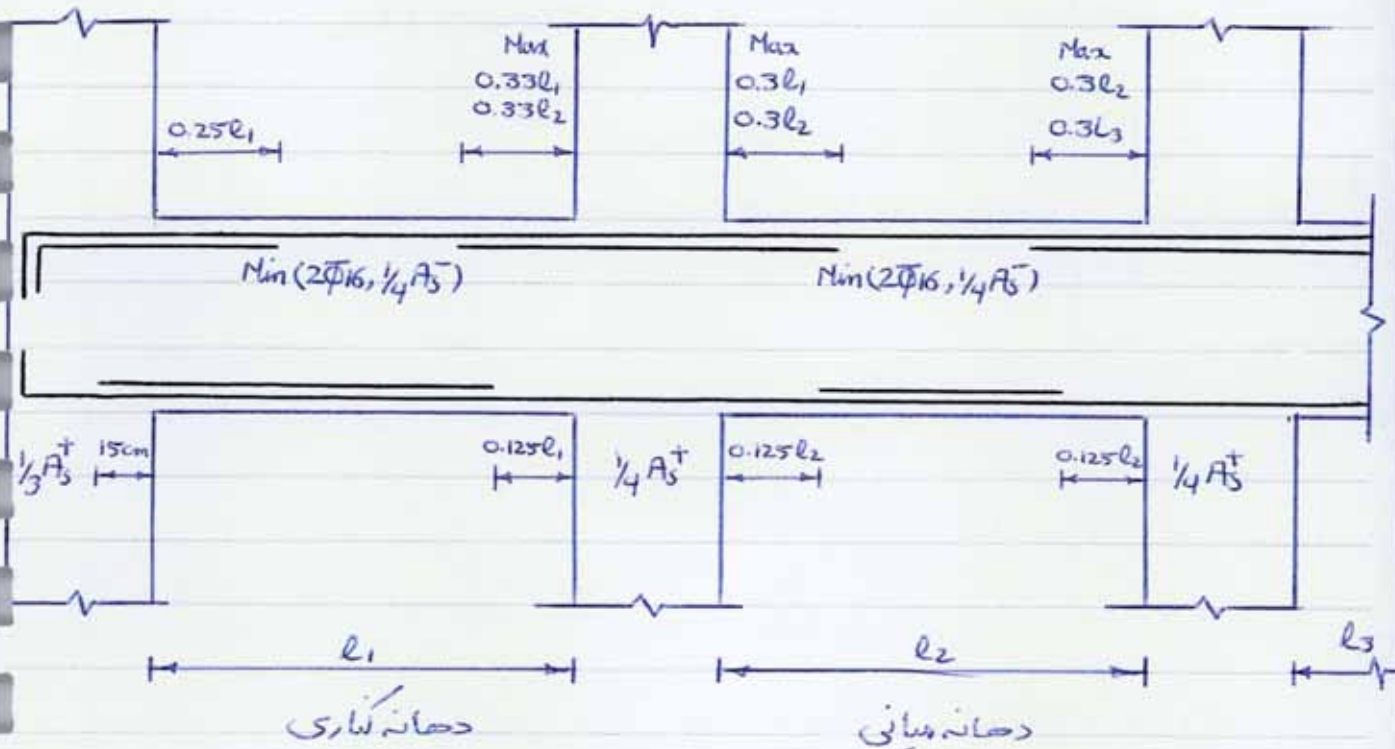 Max
0.33l₁
0.33l₂
Max
0.3l₁
0.3l₂
Max
0.3l₂
0.3L₃
0.25l₁
Min(2Φ16, 1/4 As⁻)
Min(2Φ16, 1/4 As⁻)
1/3 As⁺
15cm
0.125l₁
1/4 As⁺
0.125l₂
0.125l₂
1/4 As⁺
l₁
l₂
l₃
دهانه کناری
دهانه میانی